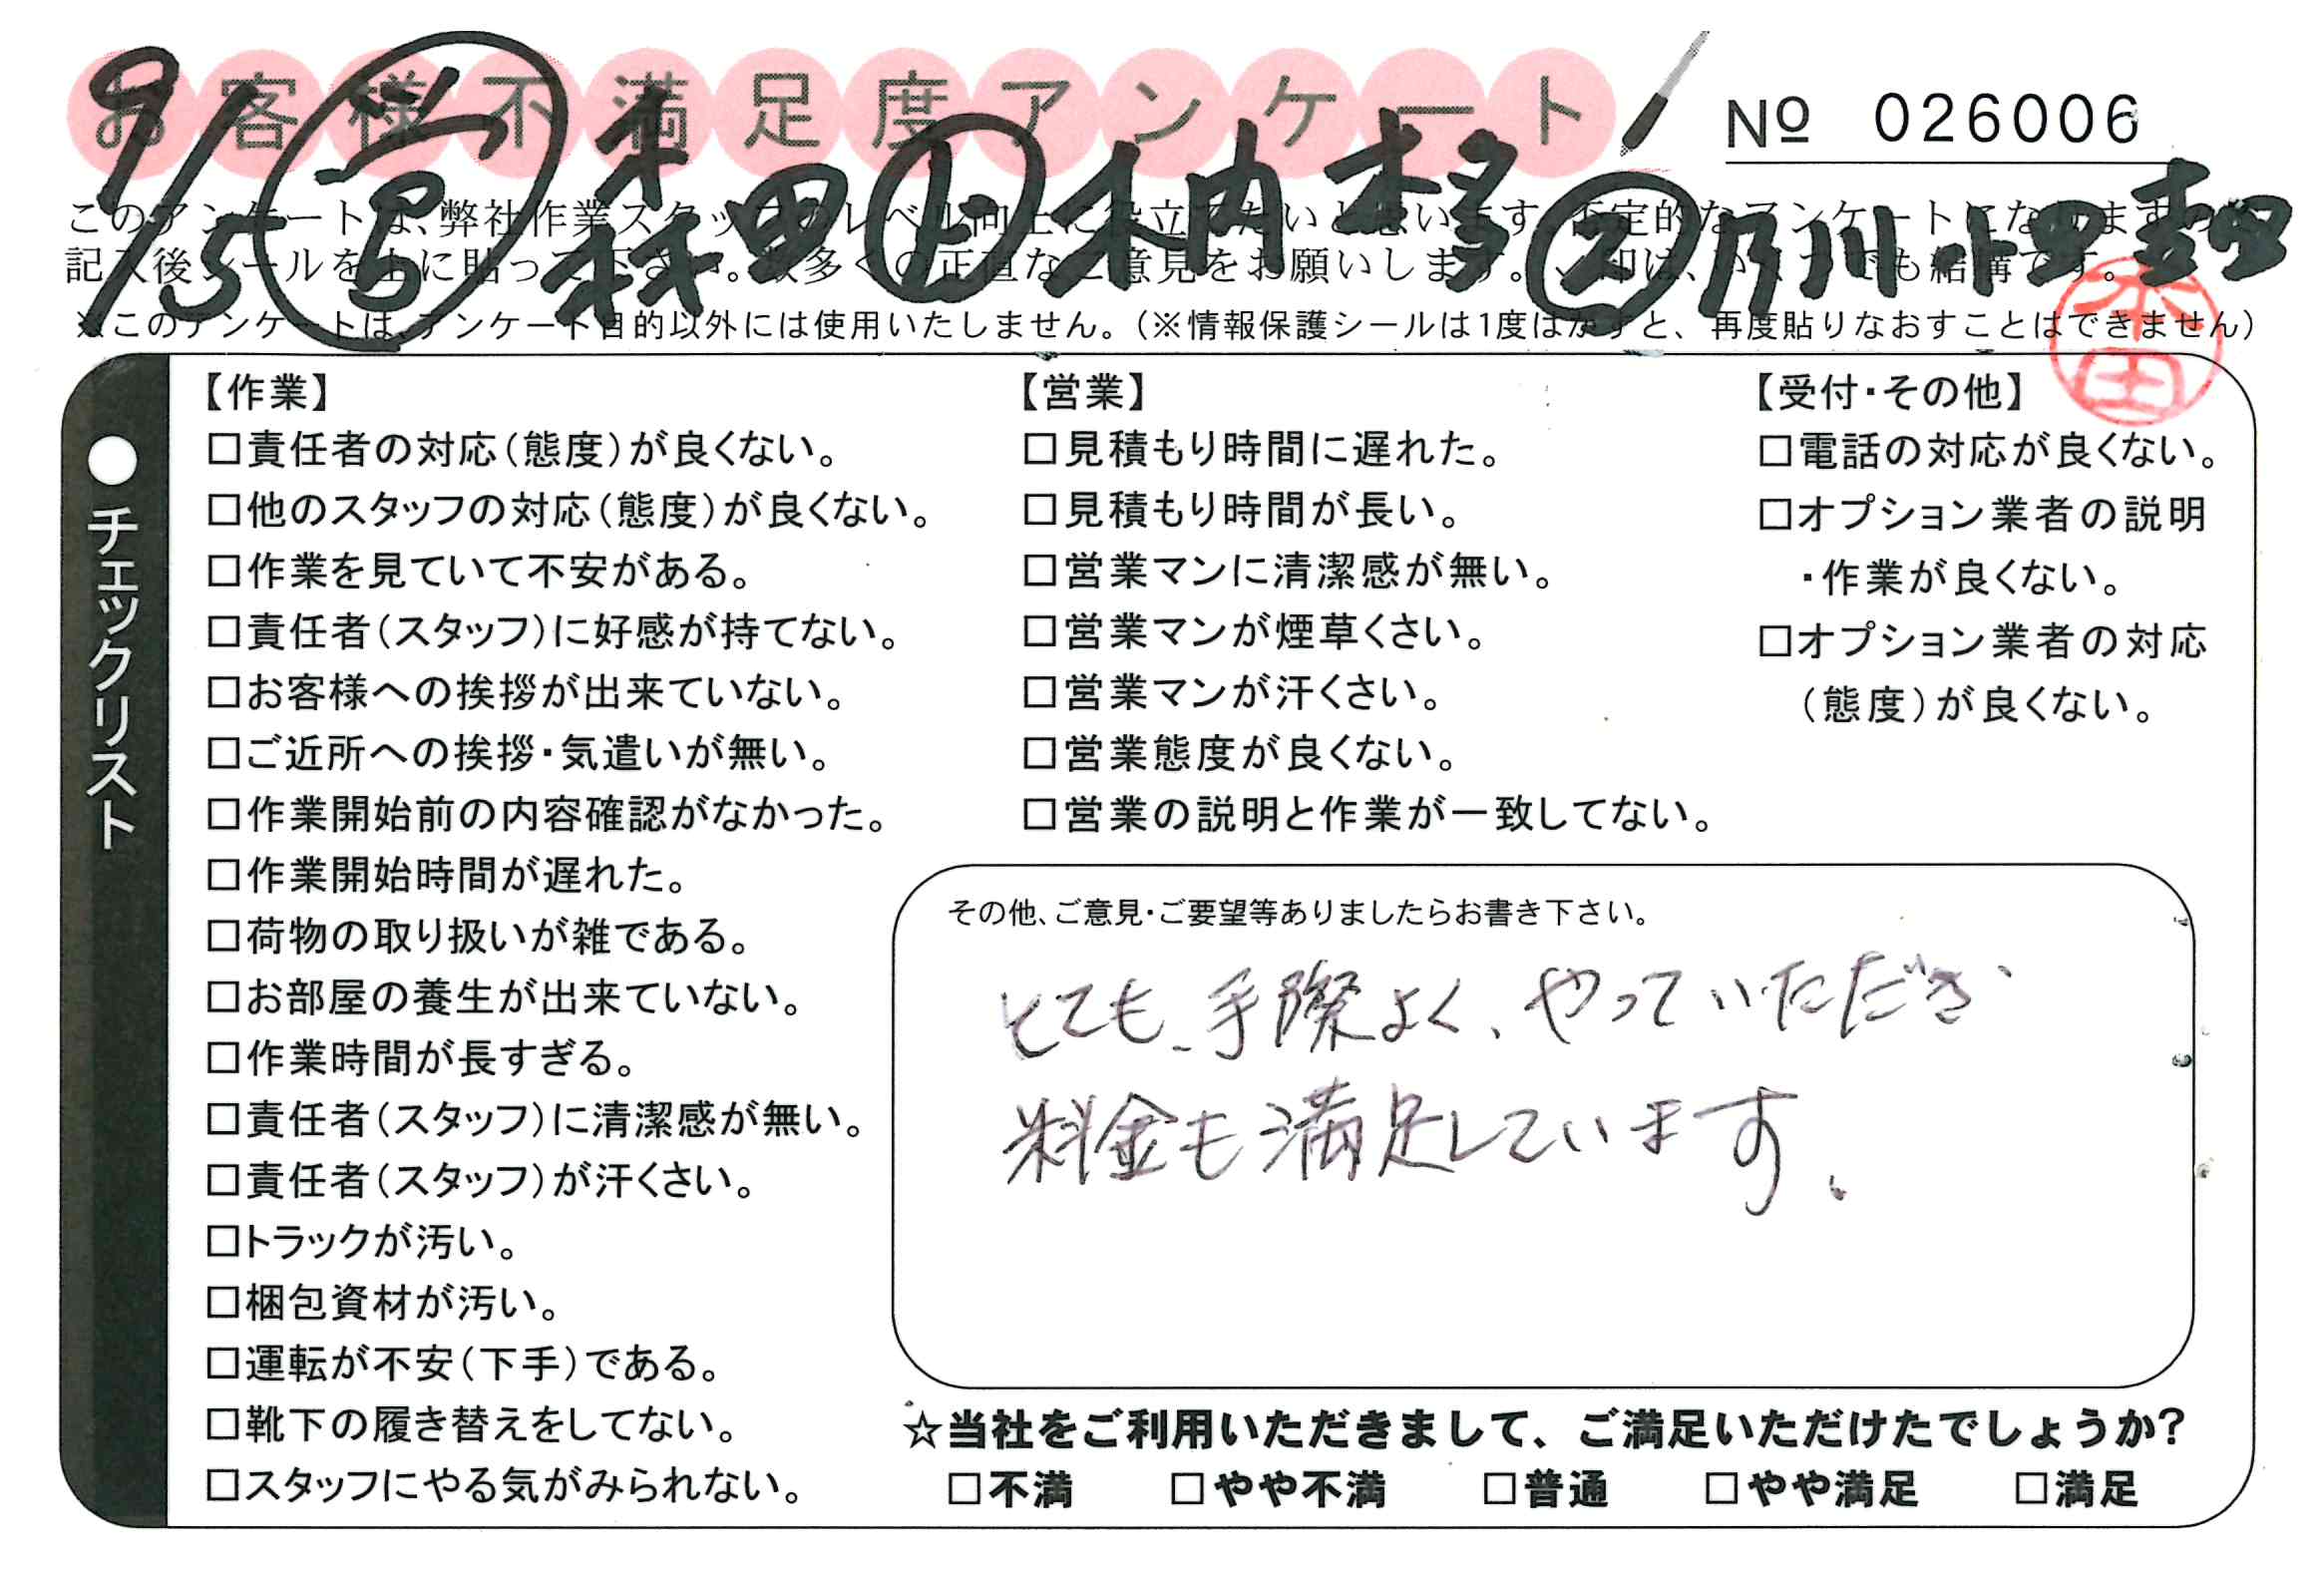 お客様不満足度アンケート
№ 026006
9/15
このアンケートは、弊社作業スタッフ レベル向上に役立てたいと思います 否定的なアンケートになりますが
記入後シールを上に貼って下さい。数多くの正直なご意見をお願いします。 印は、いくつでも結構です。
※このアンケートは、アンケート目的以外には使用いたしません。(※情報保護シールは1度はがすと、再度貼りなおすことはできません)
本田
●チェックリスト
【作業】
□責任者の対応(態度)が良くない。
□他のスタッフの対応(態度)が良くない。
□作業を見ていて不安がある。
□責任者(スタッフ)に好感が持てない。
□お客様への挨拶が出来ていない。
□ご近所への挨拶・気遣いが無い。
□作業開始前の内容確認がなかった。
□作業開始時間が遅れた。
□荷物の取り扱いが雑である。
□お部屋の養生が出来ていない。
□作業時間が長すぎる。
□責任者(スタッフ)に清潔感が無い。
□責任者(スタッフ)が汗くさい。
□トラックが汚い。
□梱包資材が汚い。
□運転が不安(下手)である。
□靴下の履き替えをしてない。
□スタッフにやる気がみられない。
【営業】
□見積もり時間に遅れた。
□見積もり時間が長い。
□営業マンに清潔感が無い。
□営業マンが煙草くさい。
□営業マンが汗くさい。
□営業態度が良くない。
□営業の説明と作業が一致してない。
【受付・その他】
□電話の対応が良くない。
□オプション業者の説明
・作業が良くない。
□オプション業者の対応
(態度)が良くない。
その他、ご意見・ご要望等ありましたらお書き下さい。
とても、手際よく、やっていただき
料金も満足しています。
☆当社をご利用いただきまして、ご満足いただけたでしょうか?
□不満 □やや不満 □普通 □やや満足 □満足